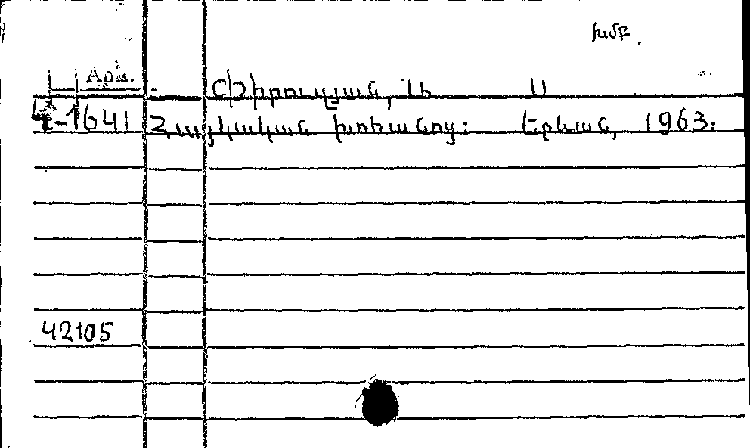 խմբ.
Արև. Փիրուզյան, Ա. Ս
4-1641 Հայկական խոհանոց: Երևան, 1963.
42105